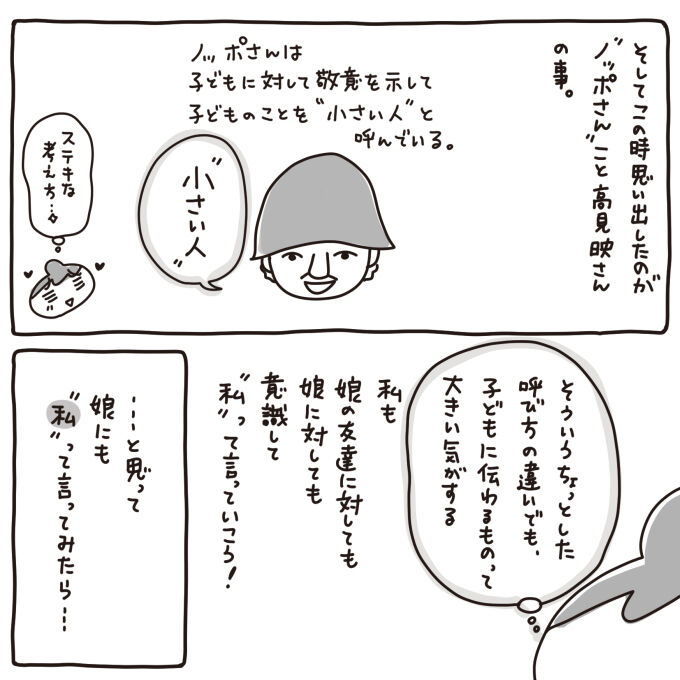 そしてこの時思い出したのが
”ノッポさん”こと高見映さん
の事。
ノッポさんは
子どもに対して敬意を示して
子どものことを”小さい人”と
呼んでいる。
”小さい人”
ステキな
考え方…
そういうちょっとした
呼び方の違いでも、
子どもに伝わるものって
大きい気がする
私も
娘の友達に対しても
娘に対しても
意識して
”私”って言っていこう!
…と思って
娘にも
”私”って言ってみたら…